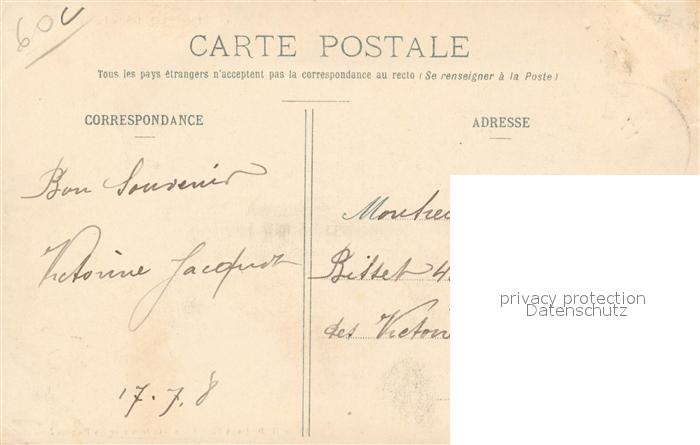 60c
CARTE POSTALE
Tous les pays étrangers n'acceptent pas la correspondance au recto (Se renseigner à la Poste)
CORRESPONDANCE
ADRESSE
Bon Souvenir
Victorine Jacquot
17.7.8
Bittet 4
des Victoi
privacy protection
Datenschutz